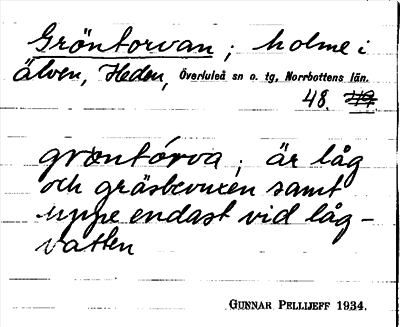 Gröntorvan; holme i
älven, Heden, Överluleå sn o. tg, Norrbottens län.
48. 49.
grœntórva; är låg
och gräsbevuxen samt
uppe endast vid låg-
vatten
GUNNAR PELLIJEFF 1934.